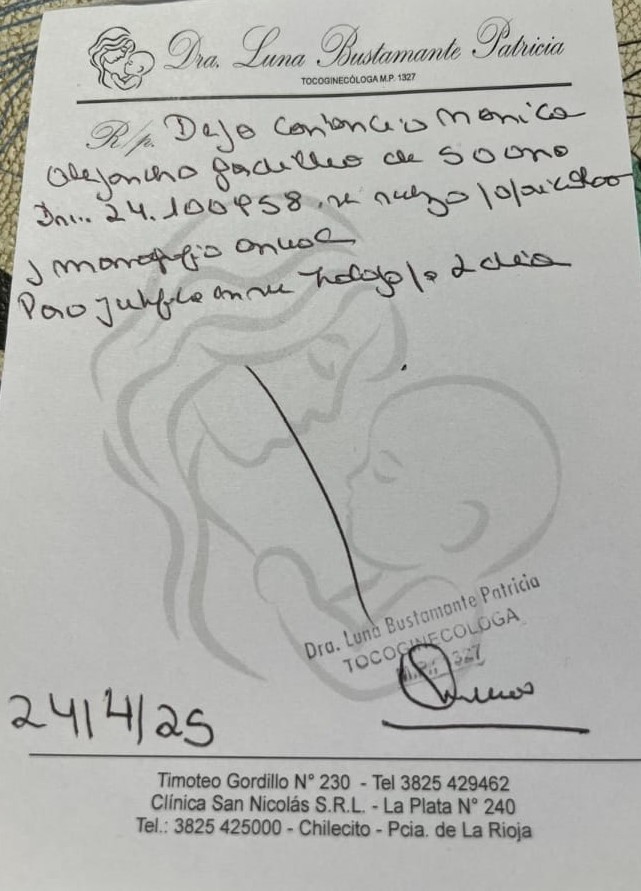 Dra. Luna Bustamante Patricia
TOCOGINECÓLOGA M.P. 1327
R/p. Dejo constancia Monica
de 50 año
Dni.. 24.100958 se realizo
y mamografia anual
Para justificar en su trabajo 2 dia
Dra. Luna Bustamante Patricia
TOCOGINECOLOGA
M.P. 1327
24/4/25
Timoteo Gordillo N° 230 - Tel 3825 429462
Clínica San Nicolás S.R.L. - La Plata N° 240
Tel.: 3825 425000 - Chilecito - Pcia. de La Rioja